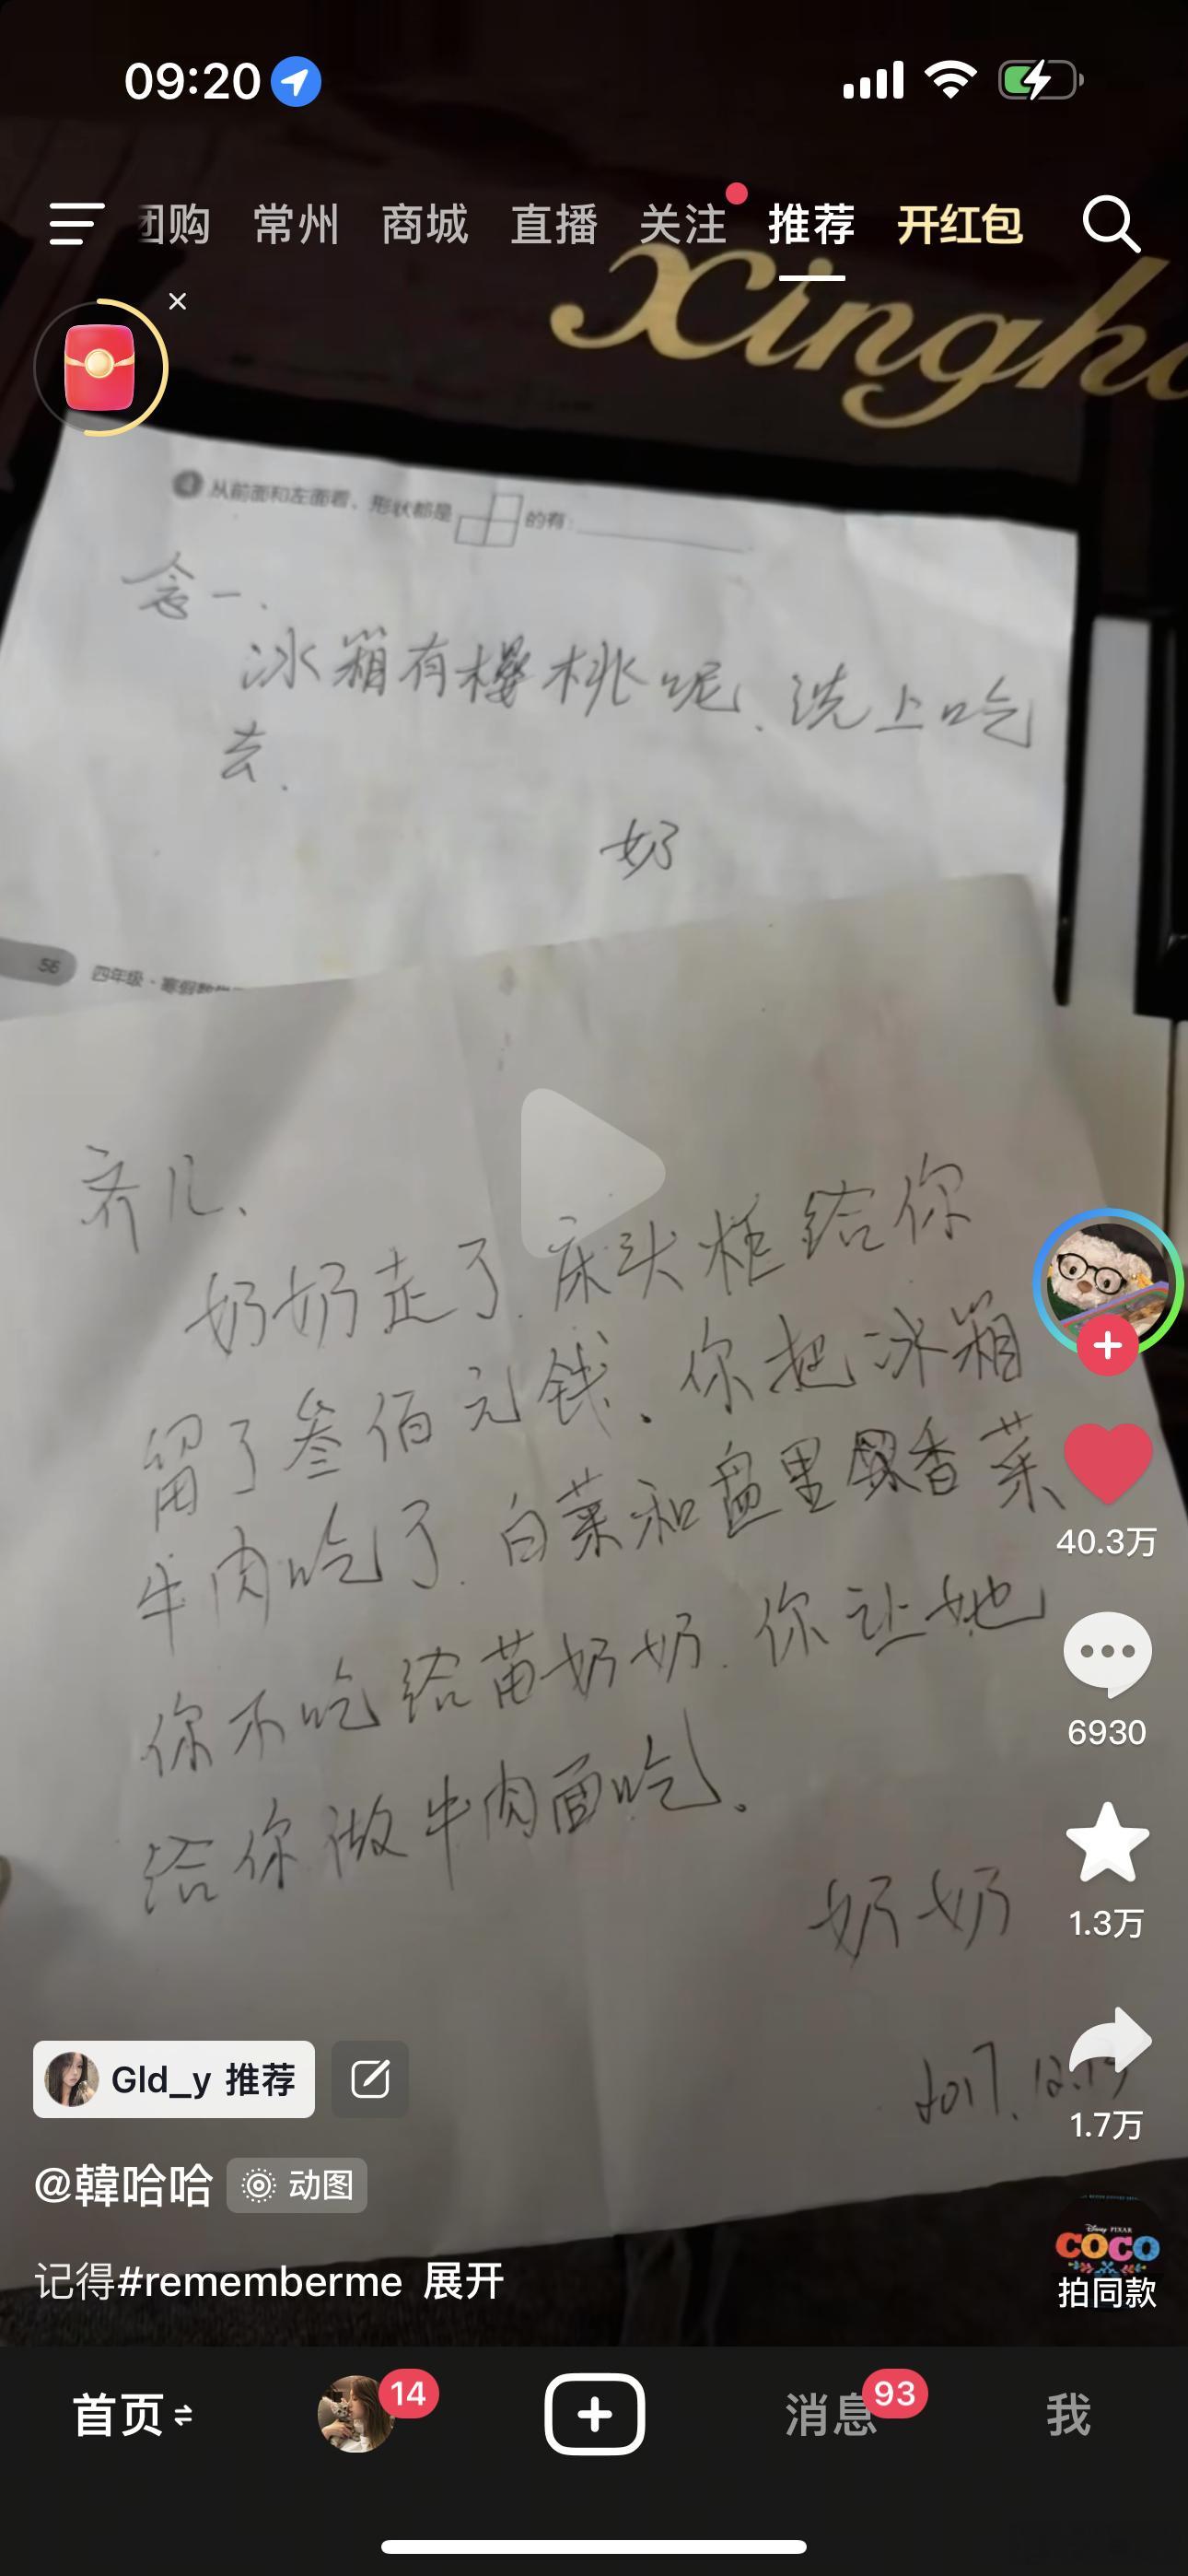 09:20
团购 常州 商城 直播 关注 推荐 开红包
Xingh
4 从前面和左面看，形状都是 的有：
念一、
冰箱有樱桃呢、洗上吃
去.
奶
56 四年级·寒假
齐儿、
奶奶走了.床头柜给你
留了叁佰元钱、你把冰箱
牛肉吃了.白菜和盘里 香菜
你不吃给苗奶奶.你让她
给你做牛肉面吃.
奶奶
2017.12.19
40.3万
6930
1.3万
1.7万
Gld_y 推荐
@韓哈哈 动图
记得#rememberme 展开
Disney PIXAR
COCO
拍同款
首页 14 消息 93 我